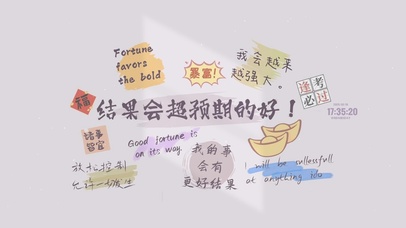 Fortune
favors
the bold
暴富!
我会越来
越强大。
逢考
必过
17:35:20
福
结果会超预期的好！
诸事
皆宜
Good fortune is
on its way.
放松控制
允许一切发生
我的事
会有
更好结果
I will be
at anything